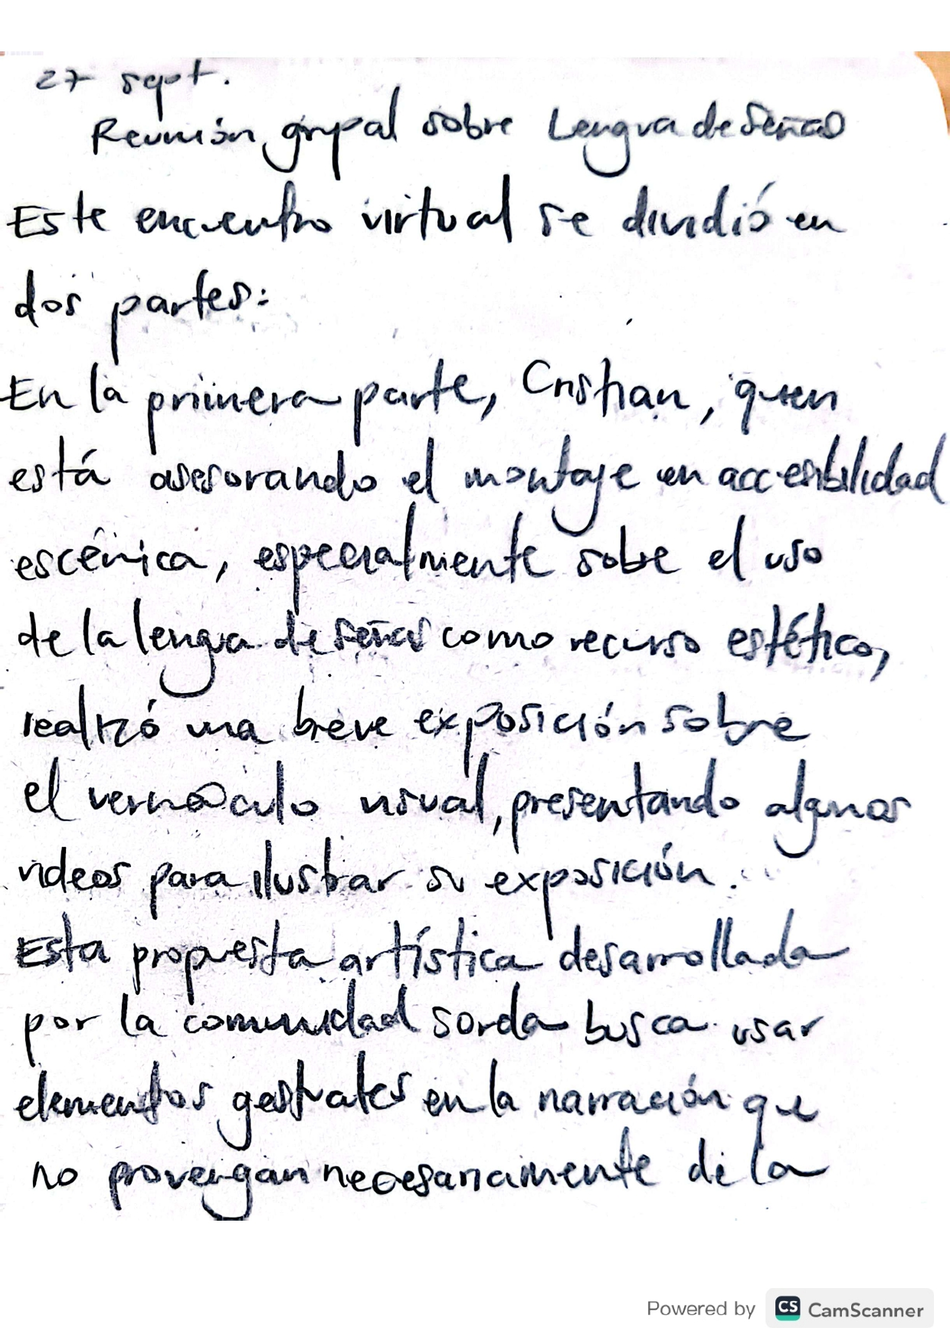 27 sept.
Reunión grupal sobre Lengua de Señas
Este encuentro virtual se dividió en
dos partes:
En la primera parte, Cristian, quien
está asesorando el montaje en accesibilidad
escénica, especialmente sobre el uso
de la lengua de señas como recurso estético,
realizó una breve exposición sobre
el vernáculo visual, presentando algunos
videos para ilustrar su exposición.
Esta propuesta artística desarrollada
por la comunidad sorda busca usar
elementos gestuales en la narración que
no provengan necesariamente de la
Powered by CS CamScanner